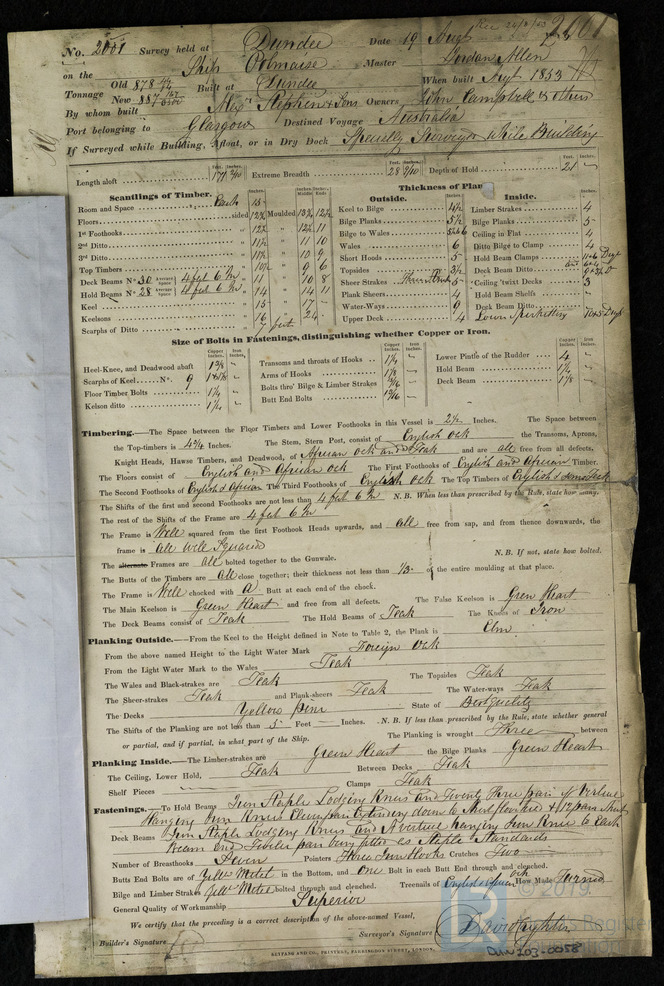 Rec 24/8/53 2001
No. 2001 Survey held at Dundee Date 19 Augt £
on the Ship Polmaise Master Jordan Allen
Tonnage Old 878 New 887 Built at Dundee When built Augt 1853
By whom built Messrs Stephen & Sons Owners John Campbell & others
Port belonging to Glasgow Destined Voyage Australia
If Surveyed while Building, Afloat, or in Dry Dock Specially Surveyed while Building
Feet. Inches. Feet. Inches. Feet. Inches.
Length aloft 171 Extreme Breadth 28 Depth of Hold 21 "
Scantlings of Timber.
Inches. Inches Middle Inches Ends
Room and Space Each 15
Floors sided 12¾ Moulded 13¾ 12½
1st Foothooks " 12½ " 12½ 11
2nd Ditto " 11½ " 11 10
3rd Ditto " 11 " 10 9
Top Timbers " 10½ " 9 6
Deck Beams No. 30 Average Space 4 feet 6 In " 11 " 10 8
Hold Beams No. 28 Average Space 4 feet 6 In " 14 " 14 11
Keel " 15 " 17
Keelsons " 16 " 24
Scarphs of Ditto 7 feet
Thickness of Plan
Outside.
Inches.
Keel to Bilge 4½
Bilge Planks 5½
Bilge to Wales 5½ & 6
Wales 6
Short Hoods 5
Topsides 3½
Sheer Strakes 5
Plank Sheers 4
Water-Ways 6
Upper Deck 4
Inside.
Inches.
Limber Strakes 4
Bilge Planks 5
Ceiling in Flat 4
Ditto Bilge to Clamp 4
Hold Beam Clamps
Deck Beam Ditto
Ceiling 'twixt Decks 3
Hold Beam Shelfs "
Deck Beam Ditto "
Lower Spirketting
Size of Bolts in Fastenings, distinguishing whether Copper or Iron.
Copper Inches Iron Inches Copper Inches Iron Inches Copper Inches Iron Inches
Heel-Knee, and Deadwood abaft 1⅜
Scarphs of Keel No. 9
Floor Timber Bolts 1¼
Kelson ditto 1¼
Transoms and throats of Hooks 1⅛
Arms of Hooks 1⅛
Bolts thro' Bilge & Limber Strakes
Butt End Bolts
Lower Pintle of the Rudder 4
Hold Beam 1¼
Deck Beam 1⅛
Timbering.—The Space between the Floor Timbers and Lower Foothooks in this Vessel is 2½ Inches. The Space between
the Top-timbers is 4¾ Inches. The Stem, Stern Post, consist of English Oak the Transoms, Aprons,
Knight Heads, Hawse Timbers, and Deadwood, of African Oak and Teak and are all free from all defects.
The Floors consist of English and African Oak The First Foothooks of English and African Timber.
The Second Foothooks of English & African The Third Foothooks of English Oak The Top Timbers of English & some Teak
The Shifts of the first and second Foothooks are not less than 4 feet 6 In N.B. When less than prescribed by the Rule, state how many.
The rest of the Shifts of the Frame are 4 feet 6 In
The Frame is Well squared from the first Foothook Heads upwards, and all free from sap, and from thence downwards, the
frame is all well Squared N.B. If not, state how bolted.
The alternate Frames are all bolted together to the Gunwale.
The Butts of the Timbers are all close together; their thickness not less than 1/3 of the entire moulding at that place.
The Frame is Well chocked with A Butt at each end of the chock.
The Main Keelson is Green Heart and free from all defects. The False Keelson is Green Heart
The Deck Beams consist of Teak The Hold Beams of Teak The Knees of Iron
Planking Outside.—From the Keel to the Height defined in Note to Table 2, the Plank is Elm
From the above named Height to the Light Water Mark Foreign Oak
From the Light Water Mark to the Wales Teak
The Wales and Black-strakes are Teak The Topsides Teak
The Sheer-strakes Teak and Plank-sheers Teak The Water-ways Teak
The Decks Yellow Pine State of Best quality
The Shifts of the Planking are not less than 5 Feet — Inches. N.B. If less than prescribed by the Rule, state whether general
or partial, and if partial, in what part of the Ship. The Planking is wrought Three between
Planking Inside.—The Limber-strakes are Green Heart the Bilge Planks Green Heart
The Ceiling, Lower Hold, Teak Between Decks Teak
Shelf Pieces Clamps Teak
Fastenings.—To Hold Beams Iron Staple Lodging Knees and Twenty Three pair of Vertical
Hanging Iron Knees
Deck Beams Iron Staple Lodging Knees and A Vertical hanging Iron Knee to Each
Beam End Twelve pair being fitted as Staple Standards
Number of Breasthooks Seven Pointers Three Iron Hooks Crutches Two
Butts End Bolts are of Yellw Metal in the Bottom, and One Bolt in each Butt End through and clenched.
Bilge and Limber Strakes Yellw Metal bolted through and clenched. Treenails of English & African Oak How Made Turned
General Quality of Workmanship Superior
We certify that the preceding is a correct description of the above-named Vessel,
Builder's Signature Surveyor's Signature
REYFASS AND CO., PRINTERS, FARRINGDON STREET, LONDON.
© 2019
DUN203-0058